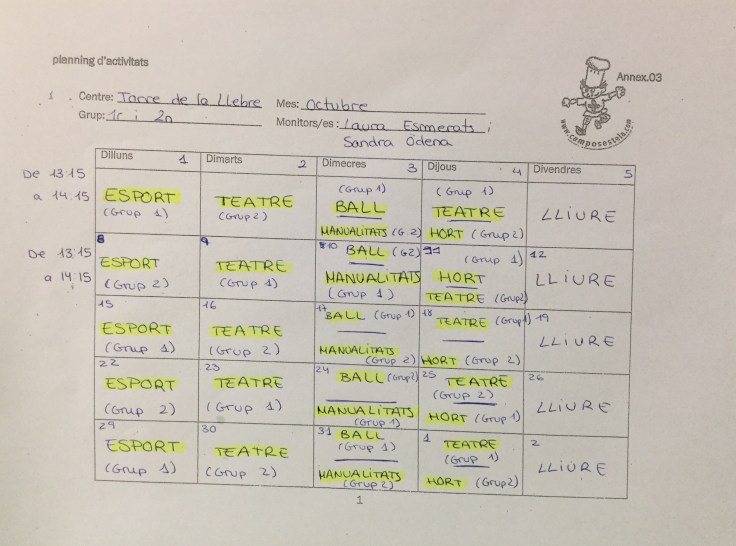 planning d'activitats
Annex.03
Centre: Torre de la Llebre Mes: Octubre
Grup: 1r i 2n Monitors/es: Laura Esmerats i
Sandra Òdena
www.camposestela.com
Dilluns 1 Dimarts 2 Dimecres 3 Dijous 4 Divendres 5
De 13:15
a 14:15
ESPORT
(Grup 1)
TEATRE
(Grup 2)
(Grup 1)
BALL
MANUALITATS (G 2)
(Grup 1)
TEATRE
HORT (Grup 2)
LLIURE
De 13:15
a 14:15
8
ESPORT
(Grup 2)
9
TEATRE
(Grup 1)
10 BALL (G2)
MANUALITATS
(Grup 1)
11 (Grup 1)
HORT
TEATRE (Grup2)
12
LLIURE
15
ESPORT
(Grup 1)
16
TEATRE
(Grup 2)
17
BALL (Grup 1)
MANUALITATS
(Grup 2)
18
TEATRE (Grup1)
HORT (Grup 2)
19
LLIURE
22
ESPORT
(Grup 2)
23
TEATRE
(Grup 1)
24
BALL (Grup2)
MANUALITATS
(Grup 1)
25 TEATRE
(Grup 2)
HORT (Grup 1)
26
LLIURE
29
ESPORT
(Grup 1)
30
TEATRE
(Grup 2)
31 BALL
(Grup 1)
MANUALITATS
(Grup 2)
1 TEATRE
(Grup 1)
HORT (Grup2)
2
LLIURE
1